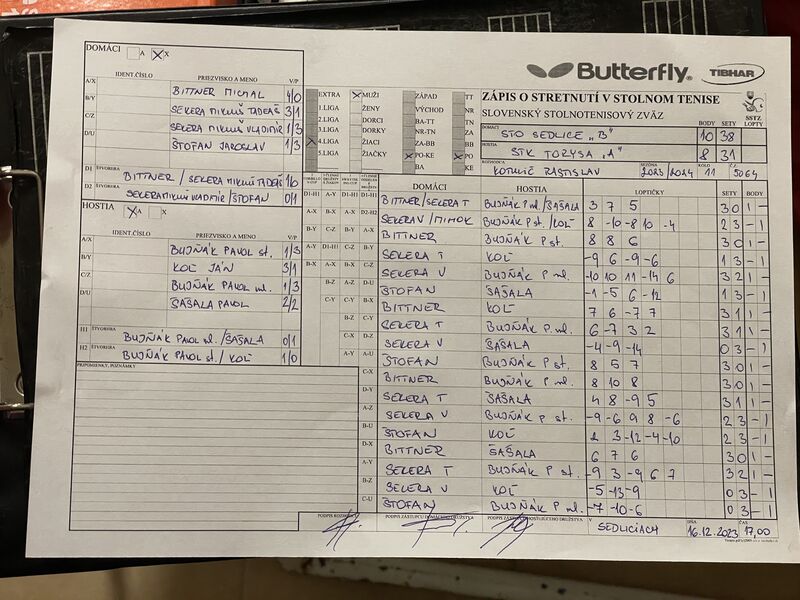 DOMÁCI A X
IDENT.ČÍSLO PRIEZVISKO A MENO V/P
A/X BITTNER MICHAL 4/0
B/Y SEKERA MIKUŠ TADEÁŠ 3/1
C/Z SEKERA MIKUŠ VLADIMÍR 1/3
D/U ŠTOFAN JAROSLAV 1/3
D1 ŠTVORHRA BITTNER / SEKERA MIKUŠ TADEÁŠ 1/0
D2 ŠTVORHRA SEKERA MIKUŠ VLADIMÍR / ŠTOFAN 0/1
HOSTIA
IDENT.ČÍSLO PRIEZVISKO A MENO V/P
A/X BUJŇÁK PAVOL st. 1/3
B/Y KOĽ JÁN 3/1
C/Z BUJŇÁK PAVOL ml. 1/3
D/U ŠAŠALA PAVOL 2/2
H1 ŠTVORHRA BUJŇÁK PAVOL ml. / ŠAŠALA 0/1
H2 ŠTVORHRA BUJŇÁK PAVOL st. / KOĽ 1/0
PRIPOMIENKY, POZNÁMKY
EXTRA MUŽI ZÁPAD TT
1.LIGA ŽENY VÝCHOD NR
2.LIGA DORCI BA-TT TN
3.LIGA DORKY NR-TN ZA
4.LIGA ŽIACI ZA-BB BB
5.LIGA ŽIAČKY PO-KE PO
BA KE
Butterfly TIBHAR
ZÁPIS O STRETNUTÍ V STOLNOM TENISE
SLOVENSKÝ STOLNOTENISOVÝ ZVÄZ
BODY SETY SSTZ LOPTY
DOMÁCI STO SEDLICE "B" 10 38
HOSTIA STK TORYSA "A" 8 31
ROZHODCA KOTULIČ RASTISLAV SEZÓNA 2023/2024 KOLO 11 Č.S. 5064
DOMÁCI HOSTIA LOPTIČKY SETY BODY
D1-H1 A-Y D1-H1 D1-H1 BITTNER/SEKERA T BUJŇÁK P ml./ŠAŠALA 3 7 5 3 0 1 -
A-X B-X A-X D2-H2 SEKERA V/MIHOK BUJŇÁK P st. /KOĽ 8 -10 -8 10 -4 2 3 - 1
B-Y C-Z B-Y A-X BITTNER BUJŇÁK P st. 8 8 6 3 0 1 -
A-Y D1-H1 C-Z B-Y SEKERA T KOĽ -9 6 -9 -6 1 3 - 1
B-X A-X B-X C-Z SEKERA V BUJŇÁK P ml. -10 10 11 -14 6 3 2 1 -
B-Z A-Z D-U ŠTOFAN ŠAŠALA -1 -5 6 -12 1 3 - 1
C-Y C-Y B-X BITTNER KOĽ 7 6 -7 7 3 1 1 -
B-Z C-Y SEKERA T BUJŇÁK P ml. 6 -7 3 2 3 1 1 -
C-X D-Z SEKERA V ŠAŠALA -4 -9 -14 0 3 - 1
A-Y A-U ŠTOFAN BUJŇÁK P st. 8 5 7 3 0 1 -
C-X BITTNER BUJŇÁK P ml. 8 10 8 3 0 1 -
D-Y SEKERA T ŠAŠALA 4 8 -9 5 3 1 1 -
A-Z SEKERA V BUJŇÁK P st. -9 -6 9 8 -6 2 3 - 1
B-U ŠTOFAN KOĽ 2 3 -12 -4 -10 2 3 - 1
D-X BITTNER ŠAŠALA 6 7 6 3 0 1 -
A-Y SEKERA T BUJŇÁK P st. -9 3 -9 6 7 3 2 1 -
B-Z SEKERA V KOĽ -5 -13 -9 0 3 - 1
C-U ŠTOFAN BUJŇÁK P ml. -7 -10 -6 0 3 - 1
PODPIS ROZHODCU PODPIS ZÁSTUPCU DOMÁCEHO DRUŽSTVA PODPIS ZÁSTUPCU HOSŤUJÚCEHO DRUŽSTVA V SEDLICIACH DŇA 16.12.2023 ČAS 17,00